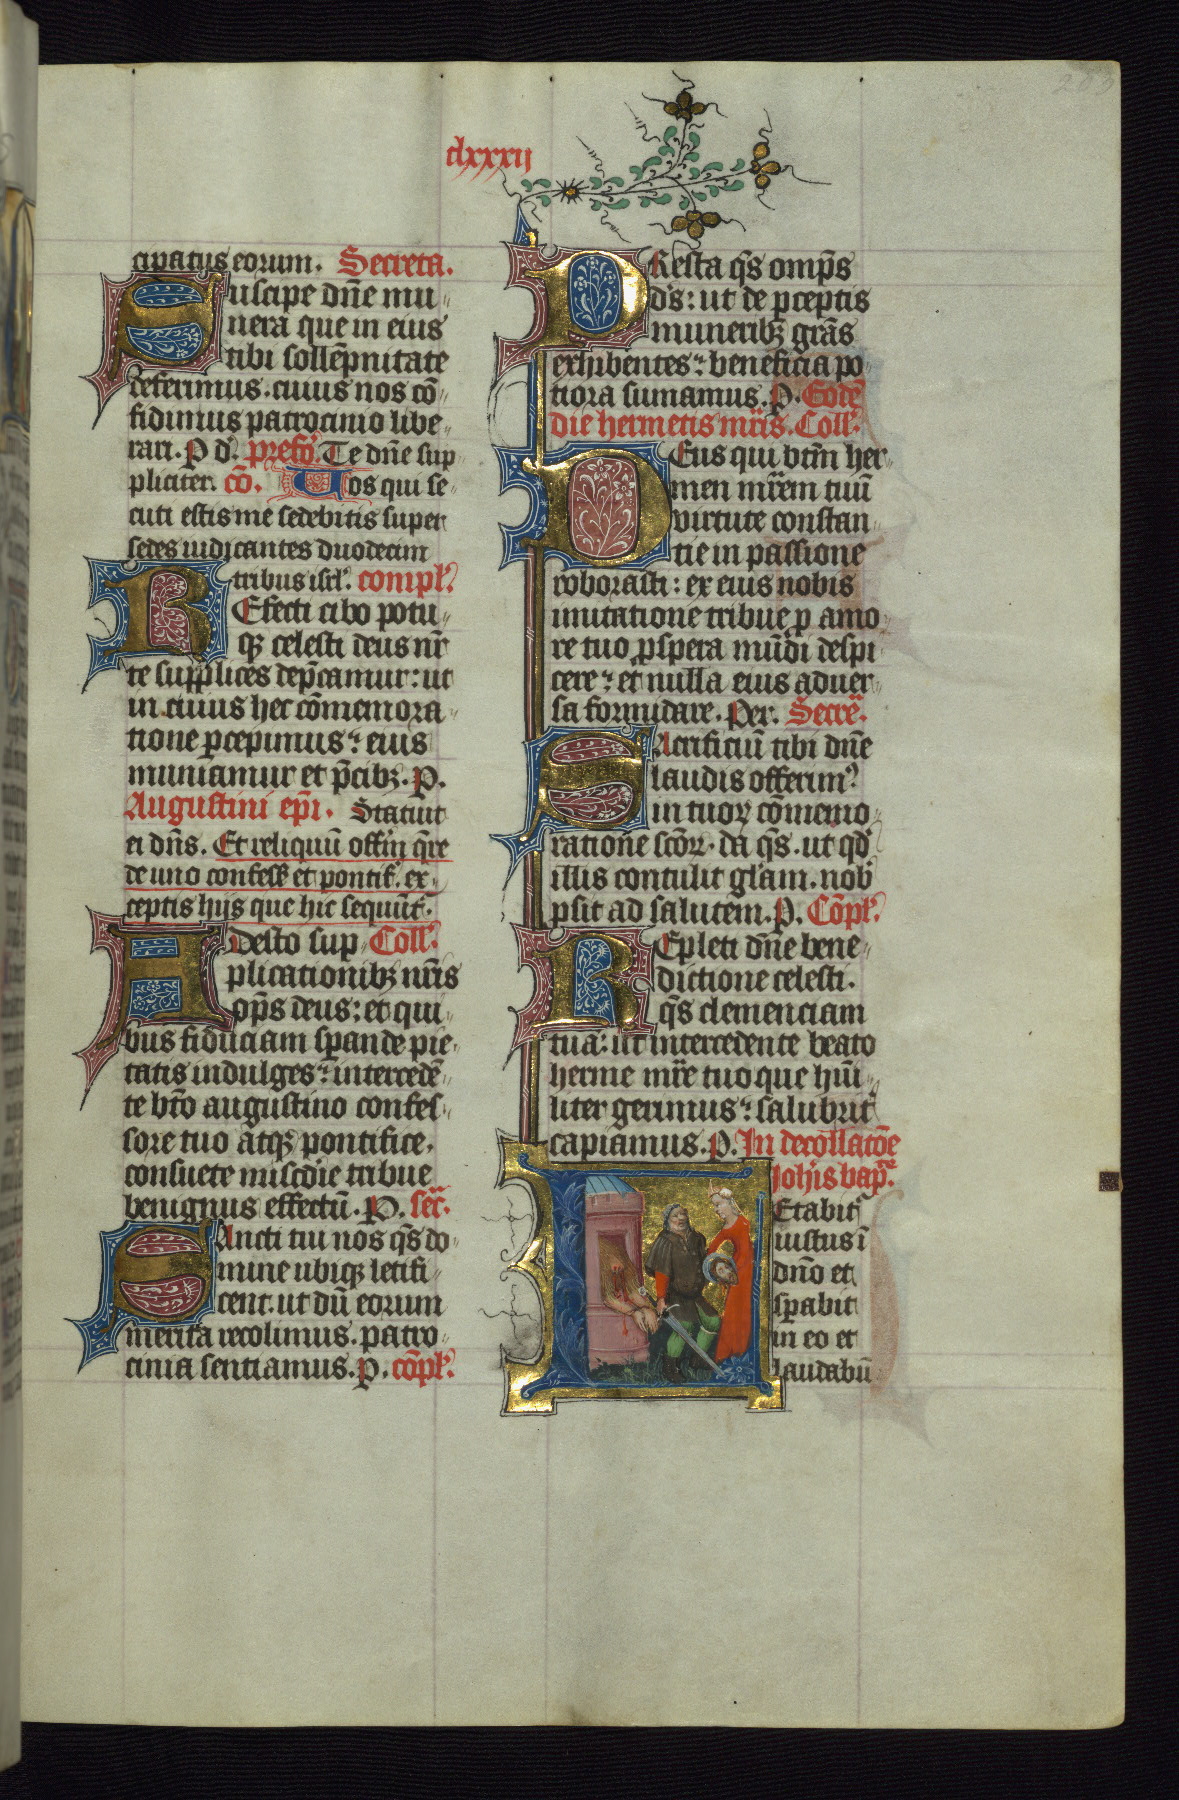 clxxxij
cipatus eorum. Secreta.
Suscipe dn̄e mu
nera que in eius
tibi sollēpnitate
deferimus. cuius nos cō
fidimus patrocinio libe
rari. P d. prefo. Te dn̄e sup
pliciter. cō. Uos qui se
cuti estis me sedebitis super
sedes iudicantes duodecim
tribus isrl̄. compl̄.
Refecti cibo potu
qꝫ celesti deus nr̄
te supplices dep̄camur: ut
in cuius hec cōmemora
tione ꝑcepimus: eius
muniamur et p̄cibꝫ. P.
Augustini ep̄i. Statuit
ei dn̄s. Et reliquū offin q̄re
de uno confess̄ et pontif. ex
ceptis hijs que hic sequūt̄.
Adesto sup Coll̄.
plicationibꝫ nr̄is
op̄s deus: et qui
bus fiduciam sꝑande pie
tatis indulges: intercedē
te bt̄o augustino confes
sore tuo atqꝫ pontifice.
consuete mīscdie tribue
benignus effectū. P. secr̄.
Sancti tui nos q̄s do
mine ubiqꝫ letifi
cent. ut dū eorum
merita recolimus. patro
cinia sentiamus. P. cōpl̄.
PResta q̄s omp̄s
ds̄: ut de ꝑceptis
muneribꝫ grās
exhibentes: beneficia po
tiora sumamus. P. Eodē
die hermetis mr̄is. Coll̄.
DEus qui bt̄m her
men mr̄em tuū
virtute constan
tie in passione
roborasti: ex eius nobis
imitatione tribue ꝑ amo
re tuo ꝓspera mūdi despi
cere: et nulla eius aduer
sa formidare. Per. Secrē.
SAcrificiū tibi dn̄e
laudis offerim᾿
in tuoꝝ cōmemo
ratione scōꝝ. da q̄s. ut qd̄
illis contulit gl̄am. nob
ꝓsit ad salutem. P. Cōpl̄.
REpleti dn̄e bene
dictione celesti.
q̄s clemenciam
tuā: ut intercedente beato
herme mr̄e tuo que hūi
liter gerimus: salubrit̄
capiamus. P. In decollatōe
Joh̄is bap̄.
LEtabit̄
iustus ī
dn̄o et
sꝑabit
in eo et
laudabū